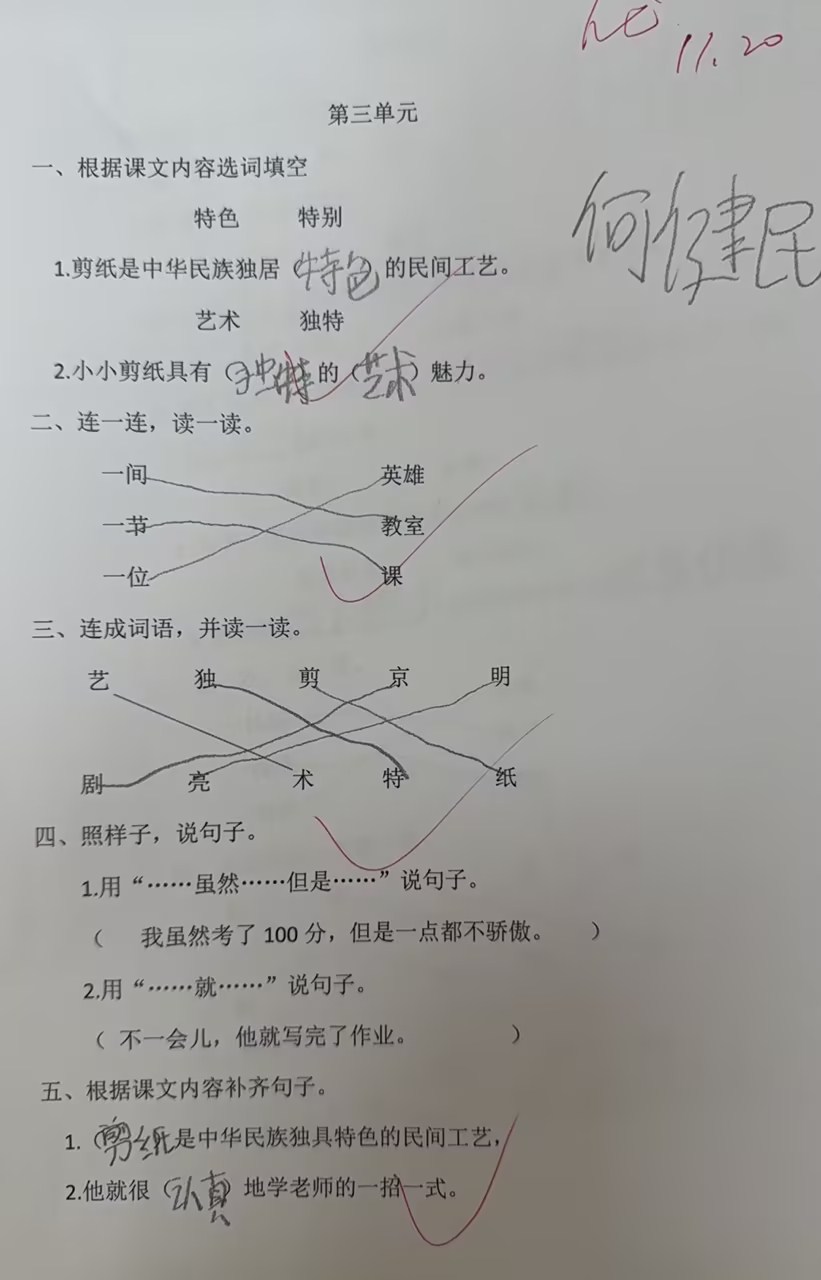 11.20
第三单元
何健民
一、根据课文内容选词填空
特色 特别
1.剪纸是中华民族独居（特色）的民间工艺。
艺术 独特
2.小小剪纸具有（独特）的（艺术）魅力。
二、连一连，读一读。
一间 英雄
一节 教室
一位 课
三、连成词语，并读一读。
艺 独 剪 京 明
剧 亮 术 特 纸
四、照样子，说句子。
1.用“……虽然……但是……”说句子。
（ 我虽然考了 100 分，但是一点都不骄傲。 ）
2.用“……就……”说句子。
（ 不一会儿，他就写完了作业。 ）
五、根据课文内容补齐句子。
1.（剪纸）是中华民族独具特色的民间工艺，
2.他就很（认真）地学老师的一招一式。